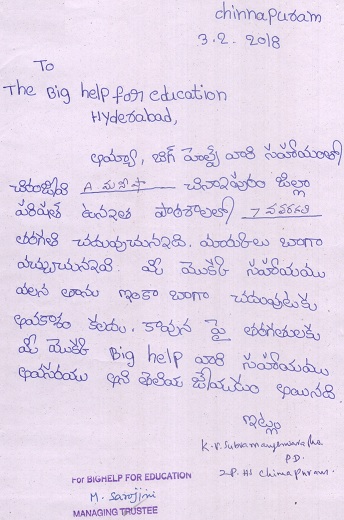 chinnapuram
3.2.2018
To
The Big help for education
Hyderabad,
అమ్మా, బిగ్ హెల్ప్ వారి సహాయంతో
చిరంజీవి A మనీషా చినాపురం జిల్లా
పరిషత్ ఉన్నత పాఠశాలలో 7 వతరగతి
తరగతి చదువుచున్నది. మార్కులు బాగా
వచ్చుచున్నది. మీ యొక్క సహాయము
వలన తాను ఇంకా బాగా చదువుటకు
అవకాశం కలదు. కావున పై తరగతులకు
మీ యొక్క Big help వారి సహాయము
అవసరము అని తెలియ జేయడం అయినది
ఇట్లు
K.V. Subramanyeswara Rao
P.D.
Z.P.HS Chinapuram.
For BIGHELP FOR EDUCATION
M. Sarojini
MANAGING TRUSTEE